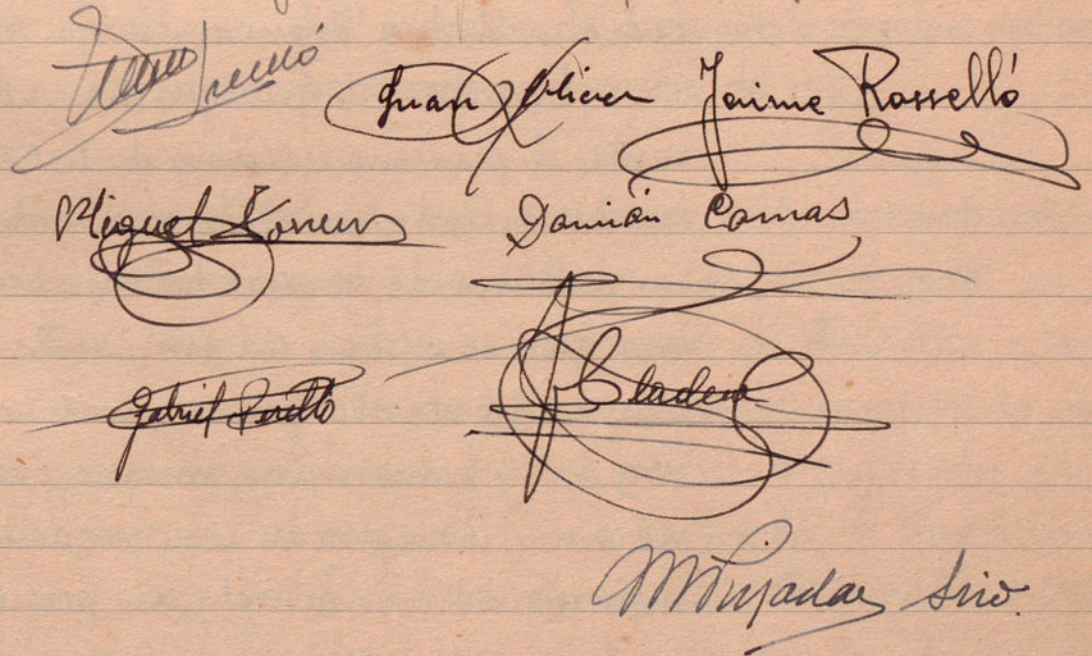 Juan Oliver Jaime Rosselló
Miguel Damián Comas
Gabriel Perelló
A. Cladera
M Pujadas Srio.